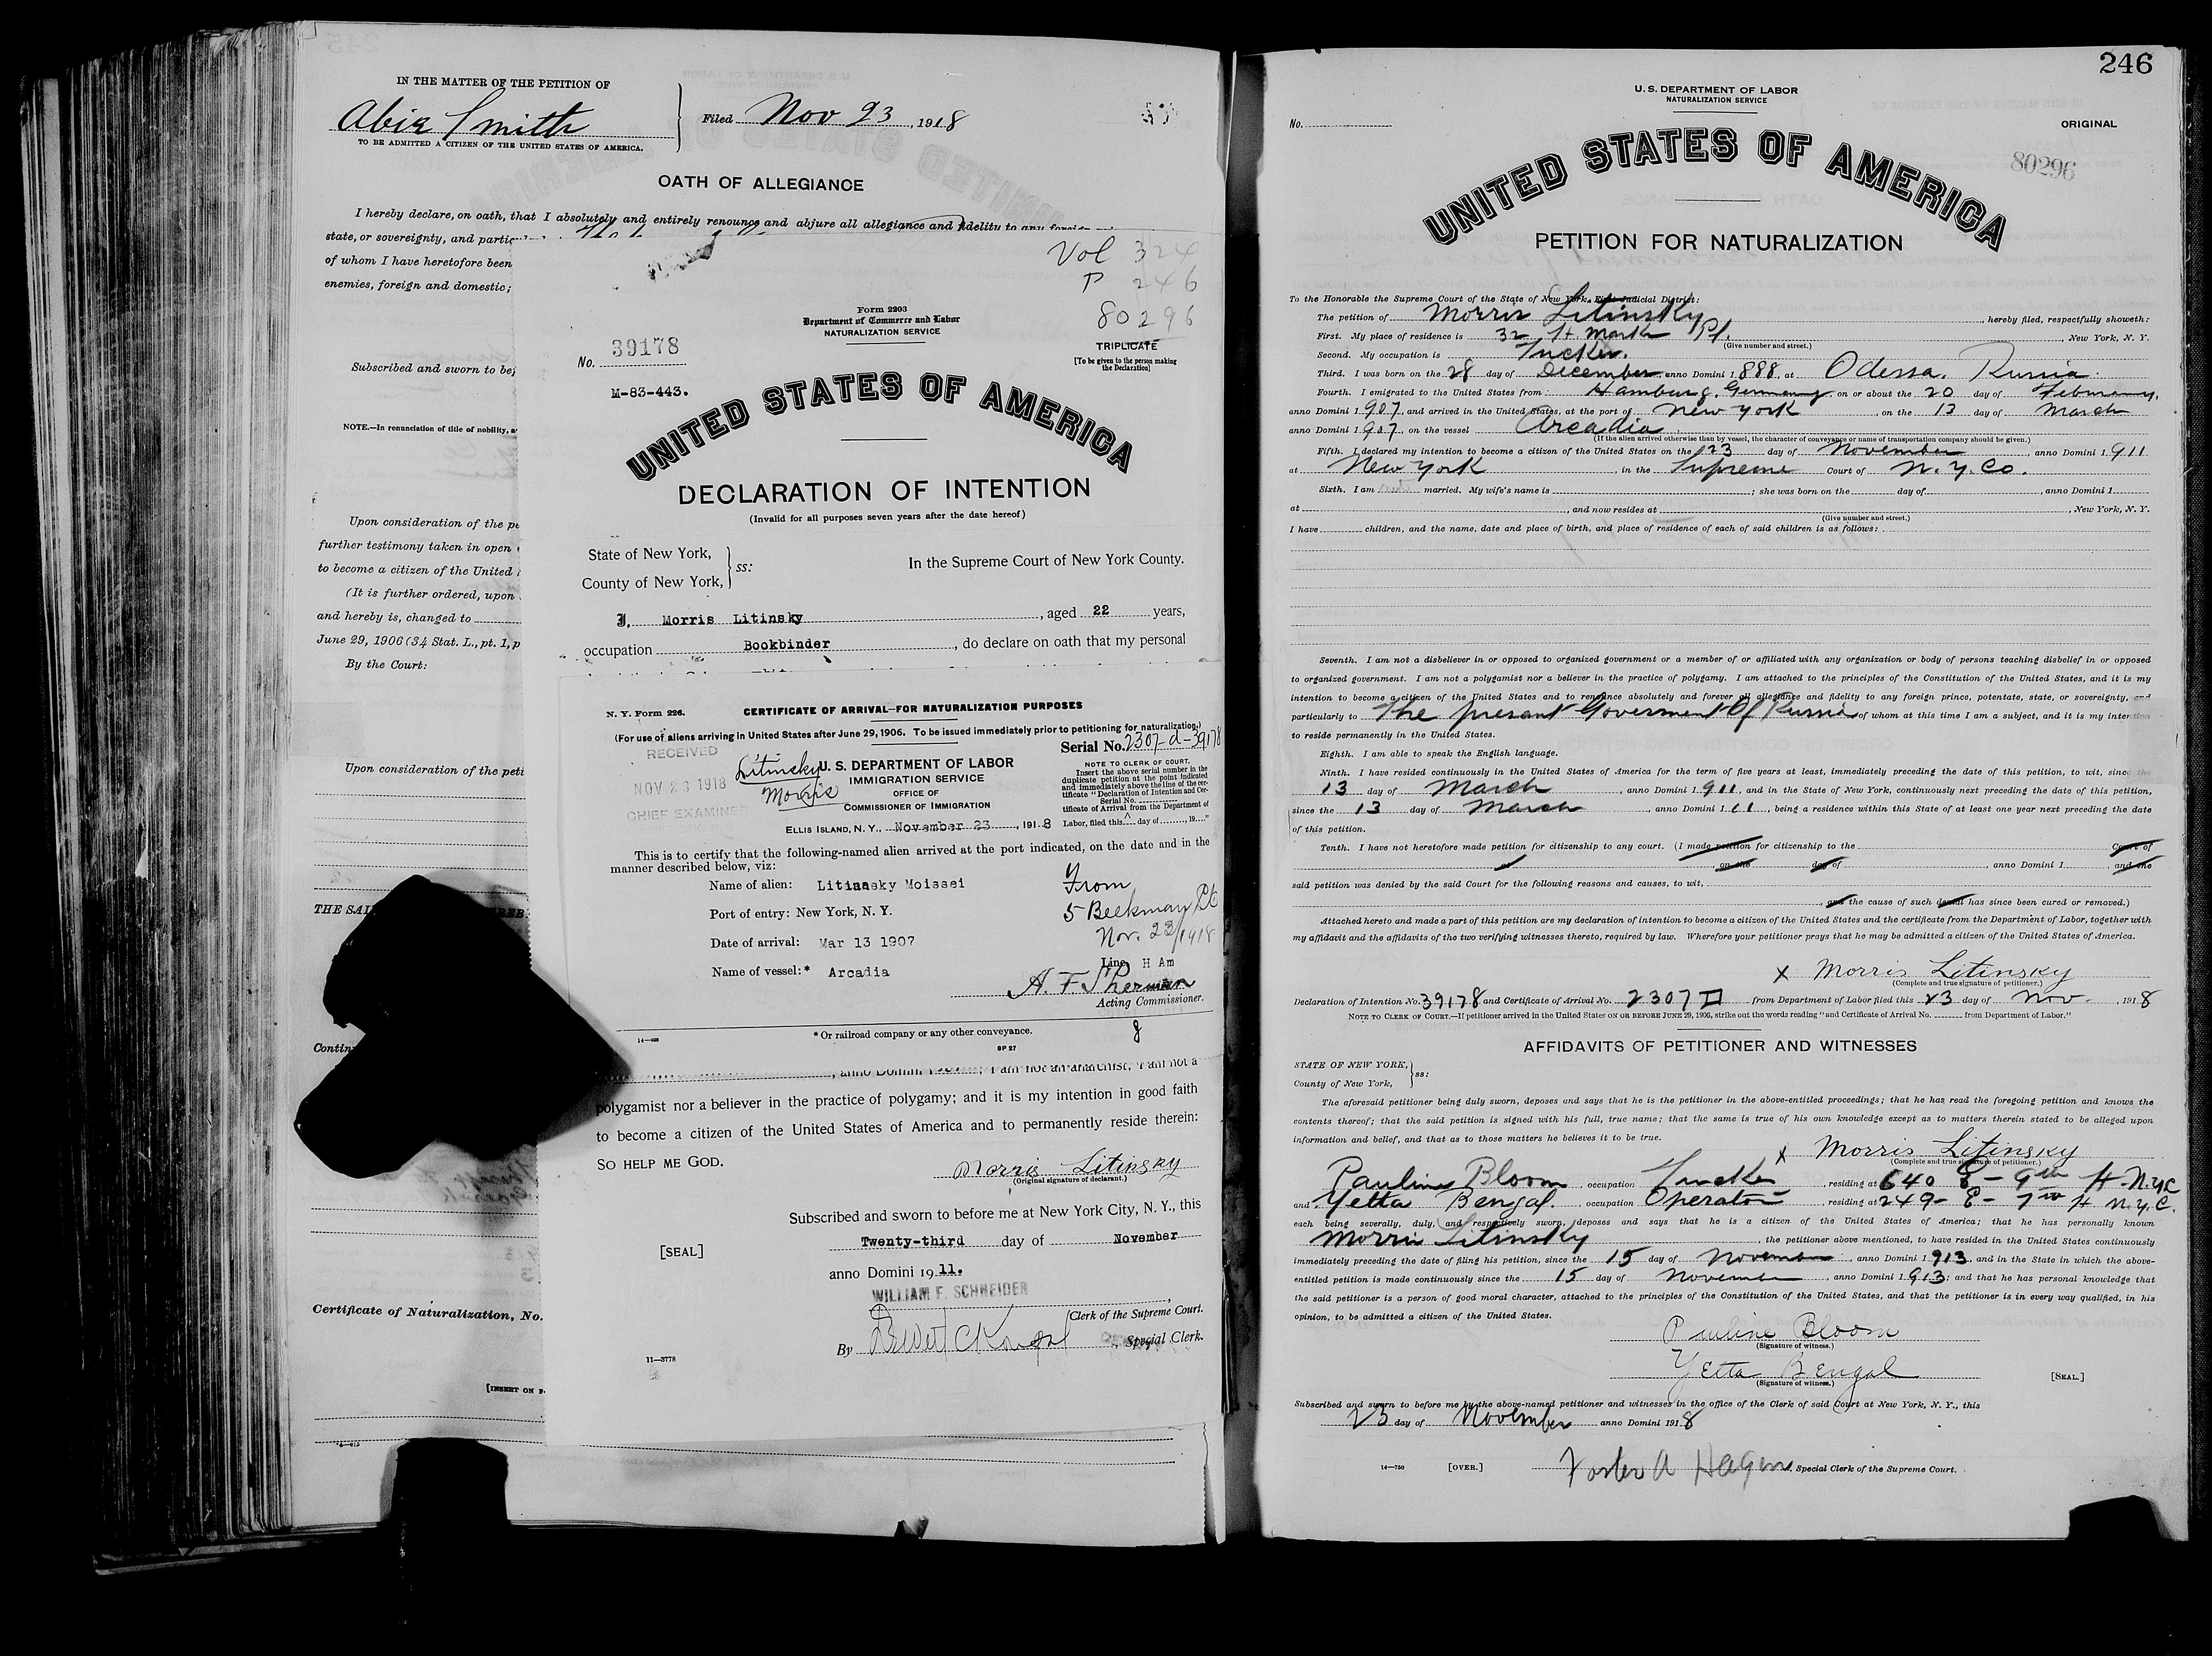 IN THE MATTER OF THE PETITION OF
Abie Smith
TO BE ADMITTED A CITIZEN OF THE UNITED STATES OF AMERICA.
Filed Nov 23, 1918
OATH OF ALLEGIANCE
I hereby declare, on oath, that I absolutely and entirely renounce and abjure all allegiance and fidelity to any foreign
state, or sovereignty, and
of whom I have heretofore been
enemies, foreign and domestic;
Subscribed and sworn to
NOTE.—In renunciation of title of nobility,
Upon consideration of the
further testimony taken in open
to become a citizen of the United
(It is further ordered, upon
and hereby is, changed to
June 29, 1906 (34 Stat. L., pt. 1,
By the Court:
Upon consideration of the
THE
Certificate of Naturalization, No.
[INSERT ON
Vol 324
P 246
80296
Form 2203
Department of Commerce and Labor
NATURALIZATION SERVICE
No. 39178
TRIPLICATE
[To be given to the person making
the Declaration]
M-83-443.
UNITED STATES OF AMERICA
DECLARATION OF INTENTION
(Invalid for all purposes seven years after the date hereof)
State of New York,
County of New York, } ss:
In the Supreme Court of New York County.
I, Morris Litinsky, aged 22 years,
occupation Bookbinder, do declare on oath that my personal
N. Y. Form 226.
CERTIFICATE OF ARRIVAL—FOR NATURALIZATION PURPOSES
(For use of aliens arriving in United States after June 29, 1906. To be issued immediately prior to petitioning for naturalization.)
Serial No. 2307-d-39178
RECEIVED
NOV 23 1918
CHIEF EXAMINE
Litinsky
Morris
U. S. DEPARTMENT OF LABOR
IMMIGRATION SERVICE
OFFICE OF
COMMISSIONER OF IMMIGRATION
NOTE TO CLERK OF COURT.
Insert the above serial number in the
duplicate petition at the point indicated
and immediately above the line of the cer-
tificate "Declaration of Intention and Cer-
Serial No.
tificate of Arrival from the Department of
Labor, filed this ^ day of ......, 19...."
ELLIS ISLAND, N. Y., November 23, 1918
This is to certify that the following-named alien arrived at the port indicated, on the date and in the
manner described below, viz:
Name of alien: Litinsky Moissei
Port of entry: New York, N. Y.
Date of arrival: Mar 13 1907
Name of vessel:* Arcadia
From
5 Beekman St
Nov. 23/1918
Line H Am
A. F. Sherman
Acting Commissioner.
* Or railroad company or any other conveyance.
8
SP 27
, anno Domini 1907; I am not an anarchist; I am not a
polygamist nor a believer in the practice of polygamy; and it is my intention in good faith
to become a citizen of the United States of America and to permanently reside therein:
SO HELP ME GOD.
Morris Litinsky
(Original signature of declarant.)
Subscribed and sworn to before me at New York City, N. Y., this
[SEAL]
Twenty-third day of November
anno Domini 1911.
WILLIAM F. SCHNEIDER
Clerk of the Supreme Court.
By
Special Clerk.
11—3778
246
U. S. DEPARTMENT OF LABOR
NATURALIZATION SERVICE
No.
ORIGINAL
80296
UNITED STATES OF AMERICA
PETITION FOR NATURALIZATION
To the Honorable the Supreme Court of the State of New York, First Judicial District:
The petition of Morris Litinsky, hereby filed, respectfully showeth:
First. My place of residence is 32 St. Marks Pl., New York, N. Y.
(Give number and street.)
Second. My occupation is Tucker.
Third. I was born on the 28 day of December anno Domini 1888, at Odessa, Russia.
Fourth. I emigrated to the United States from Hamburg, Germany on or about the 20 day of February,
anno Domini 1907, and arrived in the United States, at the port of New York on the 13 day of March
anno Domini 1907, on the vessel Arcadia
(If the alien arrived otherwise than by vessel, the character of conveyance or name of transportation company should be given.)
Fifth. I declared my intention to become a citizen of the United States on the 23 day of November, anno Domini 1911
at New York in the Supreme Court of N. Y. Co.
Sixth. I am not married. My wife's name is ; she was born on the day of , anno Domini 1
at , and now resides at , New York, N. Y.
(Give number and street.)
I have children, and the name, date and place of birth, and place of residence of each of said children is as follows:
Seventh. I am not a disbeliever in or opposed to organized government or a member of or affiliated with any organization or body of persons teaching disbelief in or opposed
to organized government. I am not a polygamist nor a believer in the practice of polygamy. I am attached to the principles of the Constitution of the United States, and it is my
intention to become a citizen of the United States and to renounce absolutely and forever all allegiance and fidelity to any foreign prince, potentate, state, or sovereignty, and
particularly to The present Goverment Of Russia of whom at this time I am a subject, and it is my intention
to reside permanently in the United States.
Eighth. I am able to speak the English language.
Ninth. I have resided continuously in the United States of America for the term of five years at least, immediately preceding the date of this petition, to wit, since the
13 day of March, anno Domini 1911, and in the State of New York, continuously next preceding the date of this petition,
since the 13 day of March, anno Domini 1911, being a residence within this State of at least one year next preceding the date
of this petition.
Tenth. I have not heretofore made petition for citizenship to any court. (I made petition for citizenship to the Court of
at on the day of , anno Domini 1 and the
said petition was denied by the said Court for the following reasons and causes, to wit,
, and the cause of such denial has since been cured or removed.)
Attached hereto and made a part of this petition are my declaration of intention to become a citizen of the United States and the certificate from the Department of Labor, together with
my affidavit and the affidavits of the two verifying witnesses thereto, required by law. Wherefore your petitioner prays that he may be admitted a citizen of the United States of America.
x Morris Litinsky
(Complete and true signature of petitioner.)
Declaration of Intention No. 39178 and Certificate of Arrival No. 2307 from Department of Labor filed this 23 day of Nov., 1918
NOTE TO CLERK OF COURT.—If petitioner arrived in the United States ON OR BEFORE JUNE 29, 1906, strike out the words reading "and Certificate of Arrival No. ........ from Department of Labor."
AFFIDAVITS OF PETITIONER AND WITNESSES
STATE OF NEW YORK,
County of New York, } ss:
The aforesaid petitioner being duly sworn, deposes and says that he is the petitioner in the above-entitled proceedings; that he has read the foregoing petition and knows the
contents thereof; that the said petition is signed with his full, true name; that the same is true of his own knowledge except as to matters therein stated to be alleged upon
information and belief, and that as to those matters he believes it to be true.
x Morris Litinsky
(Complete and true signature of petitioner.)
Pauline Bloom, occupation Tucker, residing at 640 E - 9th St. N.Y.C
and Yetta Bengal, occupation Operator, residing at 249 - E - 7th St N.Y.C.
each being severally, duly, and respectively sworn, deposes and says that he is a citizen of the United States of America; that he has personally known
Morris Litinsky, the petitioner above mentioned, to have resided in the United States continuously
immediately preceding the date of filing his petition, since the 15 day of November, anno Domini 1913 and in the State in which the above-
entitled petition is made continuously since the 15 day of November, anno Domini 1913; and that he has personal knowledge that
the said petitioner is a person of good moral character, attached to the principles of the Constitution of the United States, and that the petitioner is in every way qualified, in his
opinion, to be admitted a citizen of the United States.
Pauline Bloom
(Signature of witness.)
Yetta Bengal
(Signature of witness.)
[SEAL.]
Subscribed and sworn to before me by the above-named petitioner and witnesses in the office of the Clerk of said Court at New York, N. Y., this
23 day of November anno Domini 1918
14—750
[OVER.]
Foster A Hagen, Special Clerk of the Supreme Court.